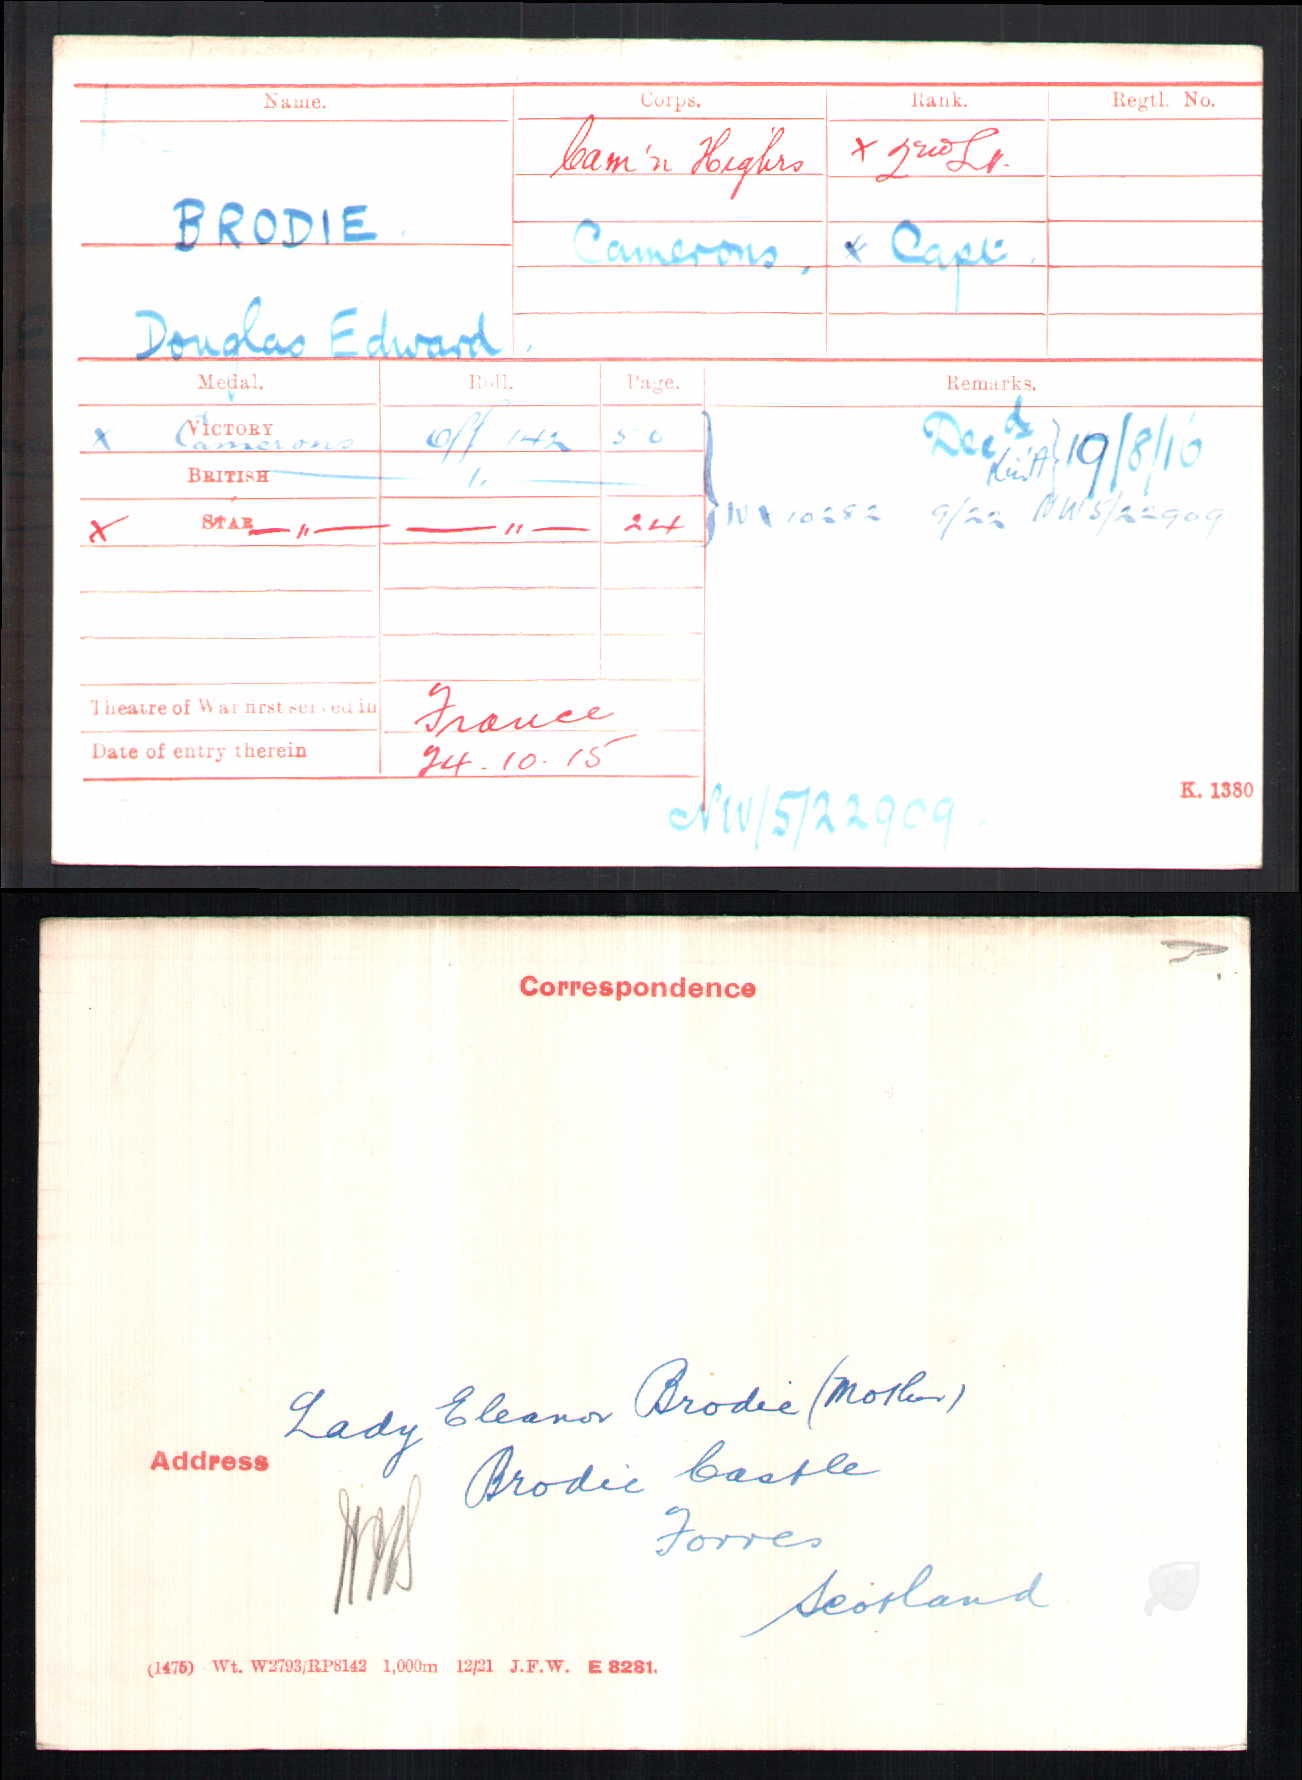 Name. Corps. Rank. Regtl. No.
Cam'n Highrs x 2nd Lt.
BRODIE. Camerons, x Capt.
Douglas Edward.
Medal. Roll. Page. Remarks.
x VICTORY Camerons Off 142 50 Decd 19/8/16
BRITISH "
x STAR " " 24 10282 9/22 NW5/22909
Theatre of War first served in France
Date of entry therein 24.10.15
K. 1380
NW/5/22909.
Correspondence
Lady Eleanor Brodie (Mother)
Address Brodie Castle
Forres
Scotland
(1475) Wt. W2793/RP8142 1,000m 12/21 J.F.W. E 8281.